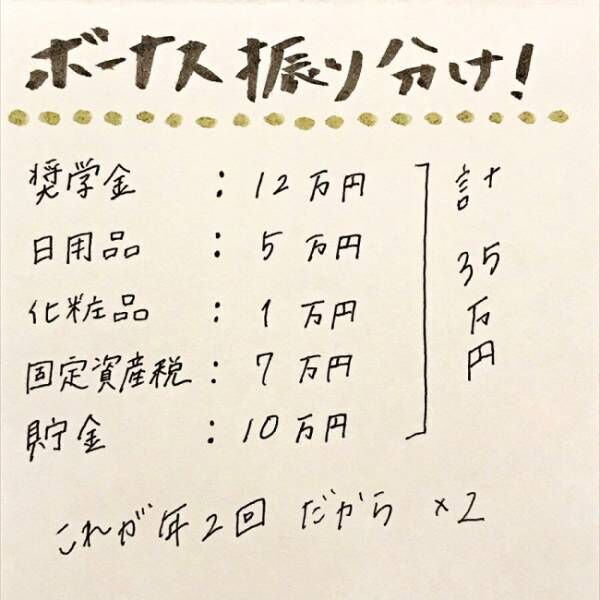 ボーナス振り分け!
奨学金 : 12万円
日用品 : 5万円
化粧品 : 1万円
固定資産税 : 7万円
貯金 : 10万円
計35万円
これが年2回だから ×2